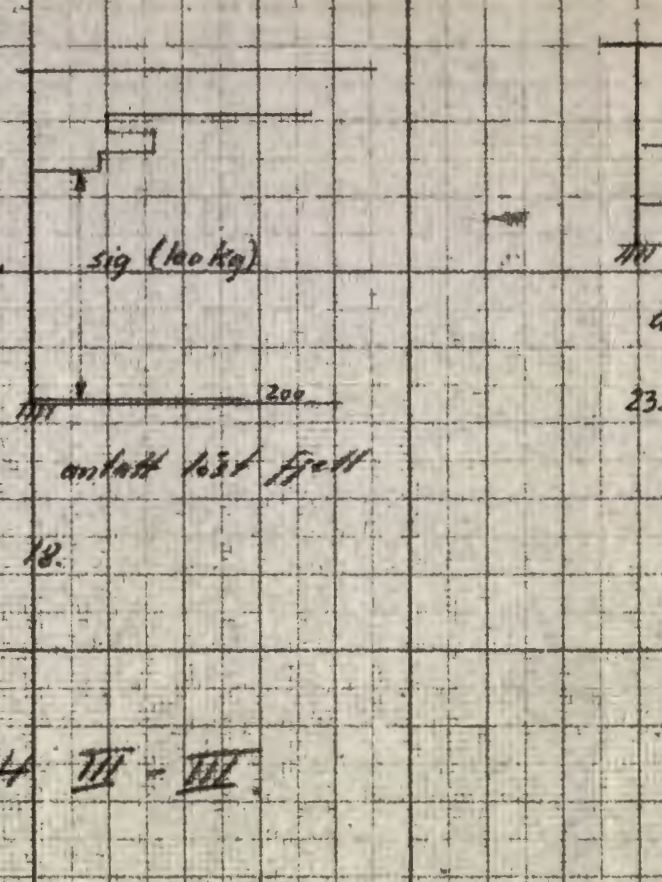 sig (100 kg)
200
antatt löst fjell
23.
18.
4 III - III